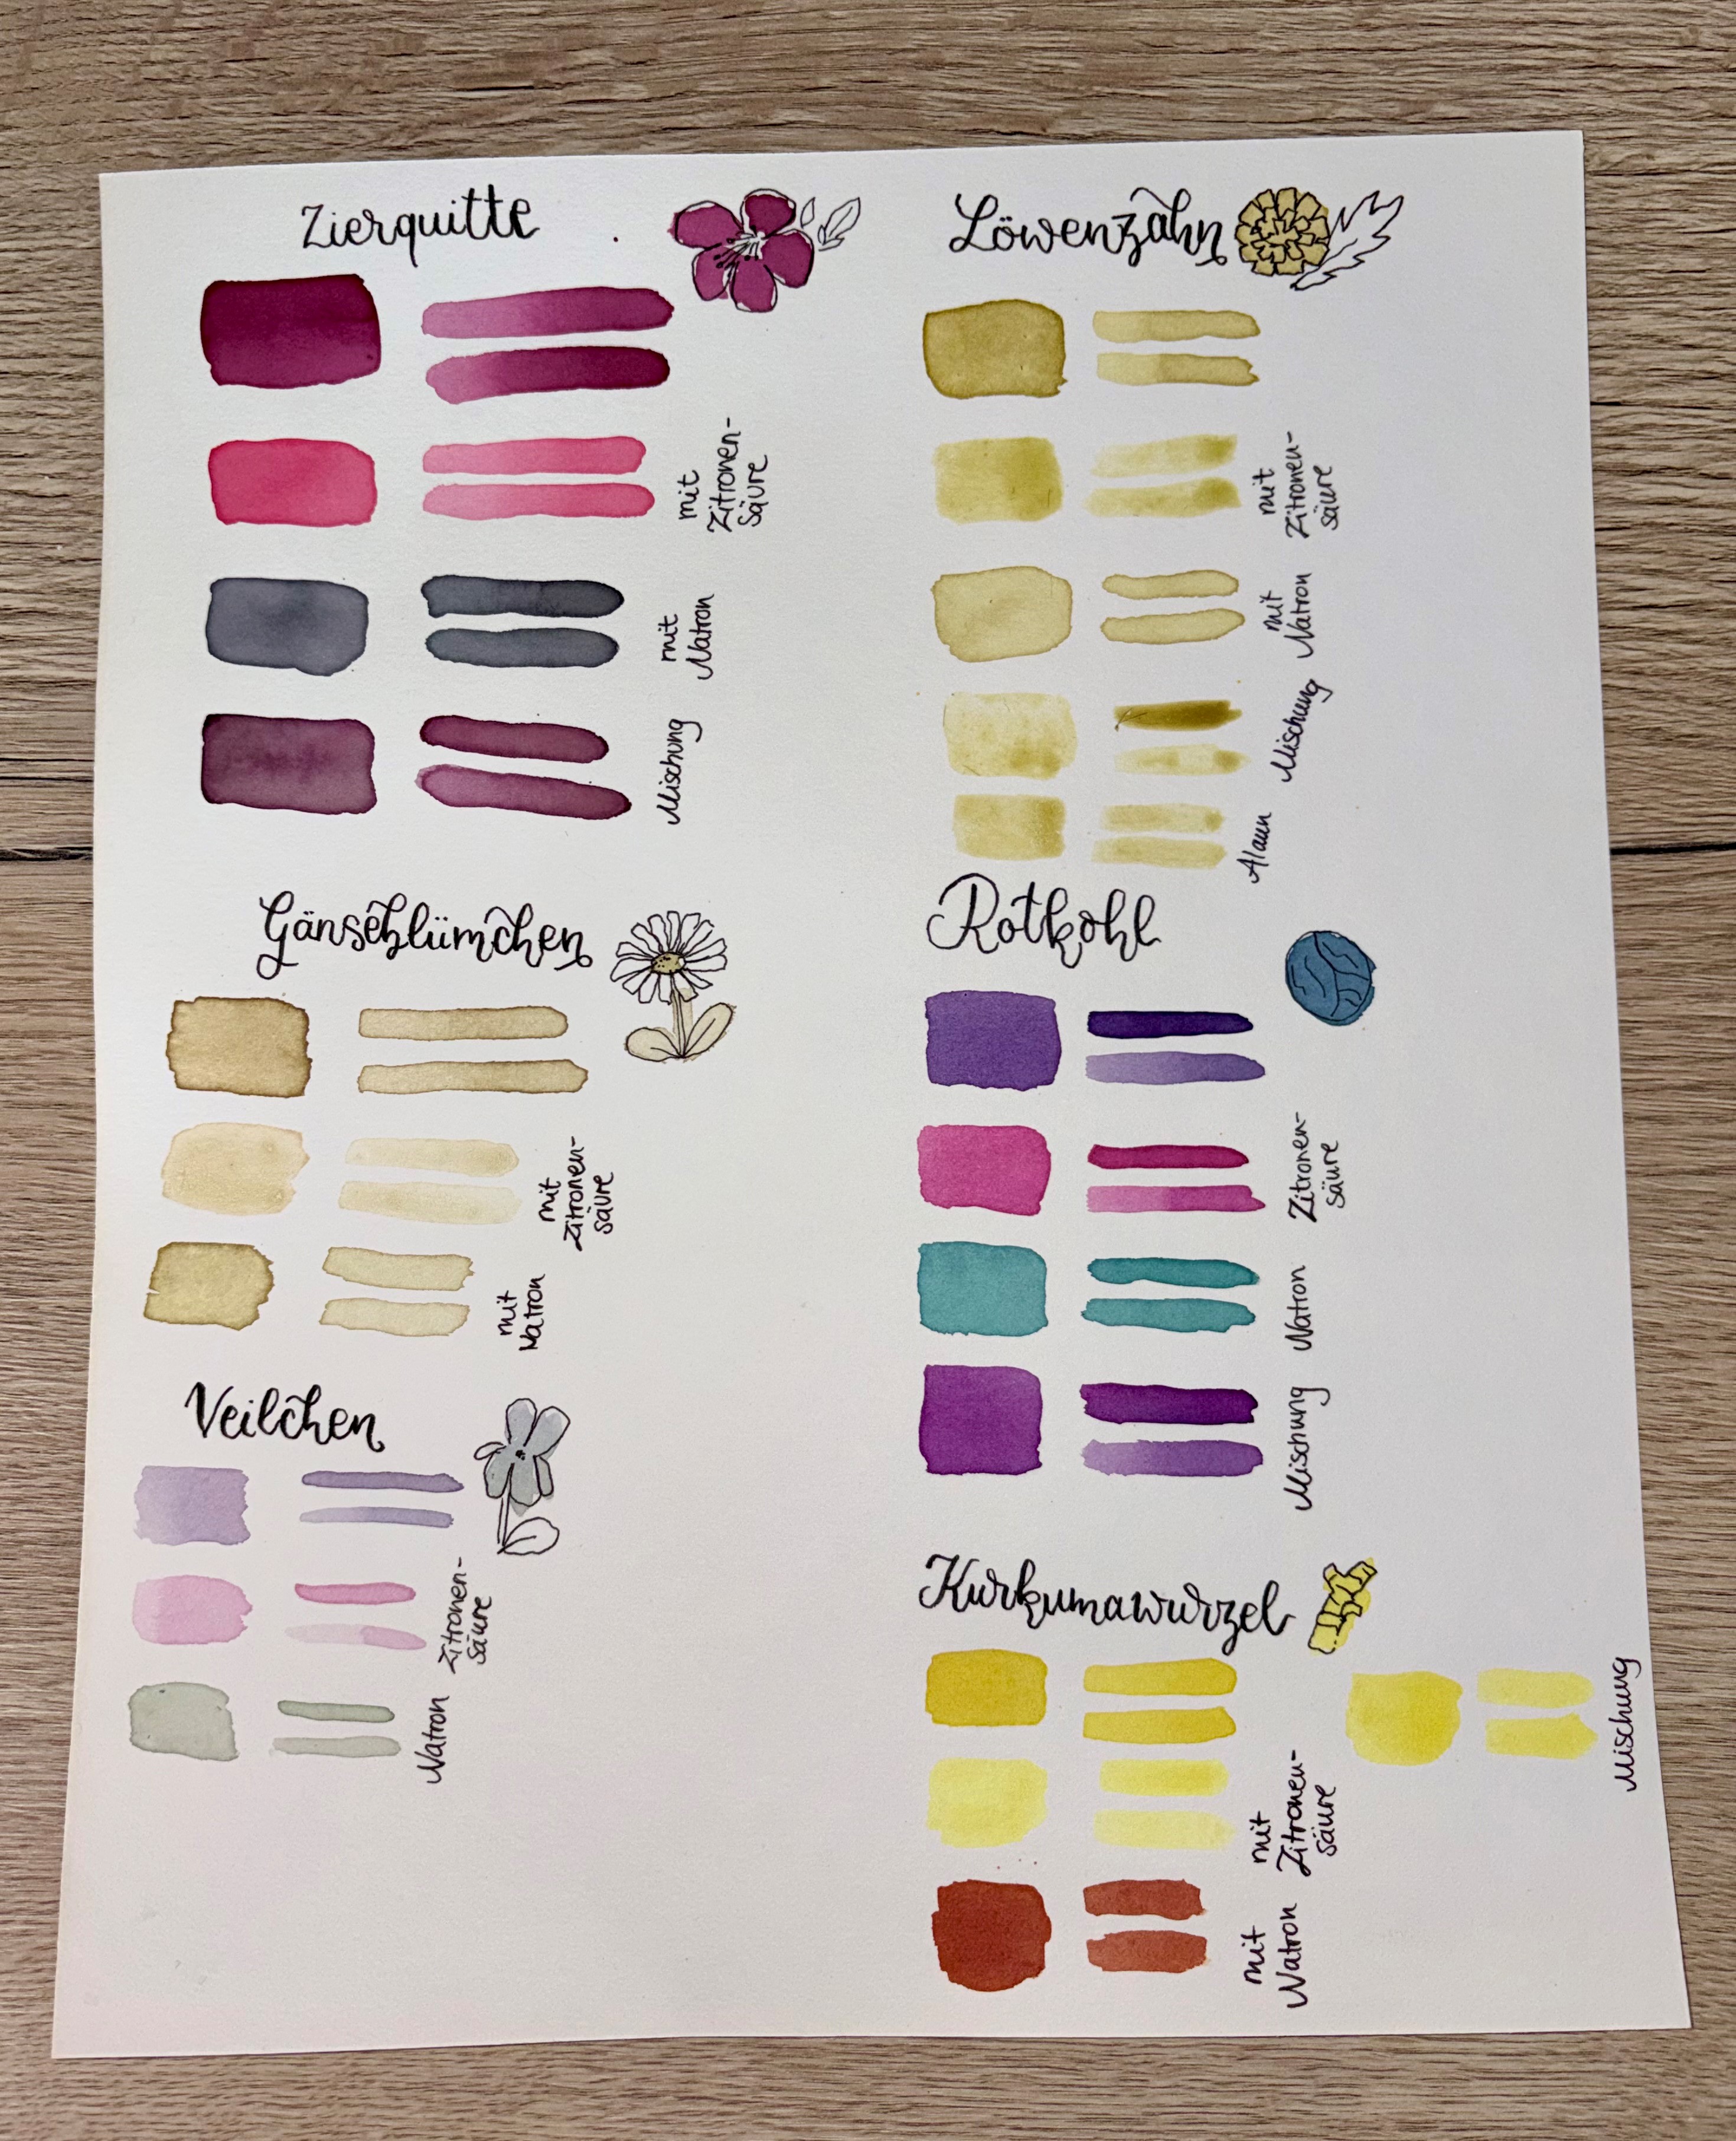 Zierquitte
mit
Zitronen-
säure
mit
Natron
Mischung
Gänseblümchen
mit
Zitronen-
säure
mit
Natron
Veilchen
Zitronen-
säure
Natron
Löwenzahn
mit
Zitronen-
säure
mit
Natron
Mischung
Alaun
Rotkohl
Zitronen-
säure
Natron
Mischung
Kurkumawurzel
Mischung
mit
Zitronen-
säure
mit
Natron